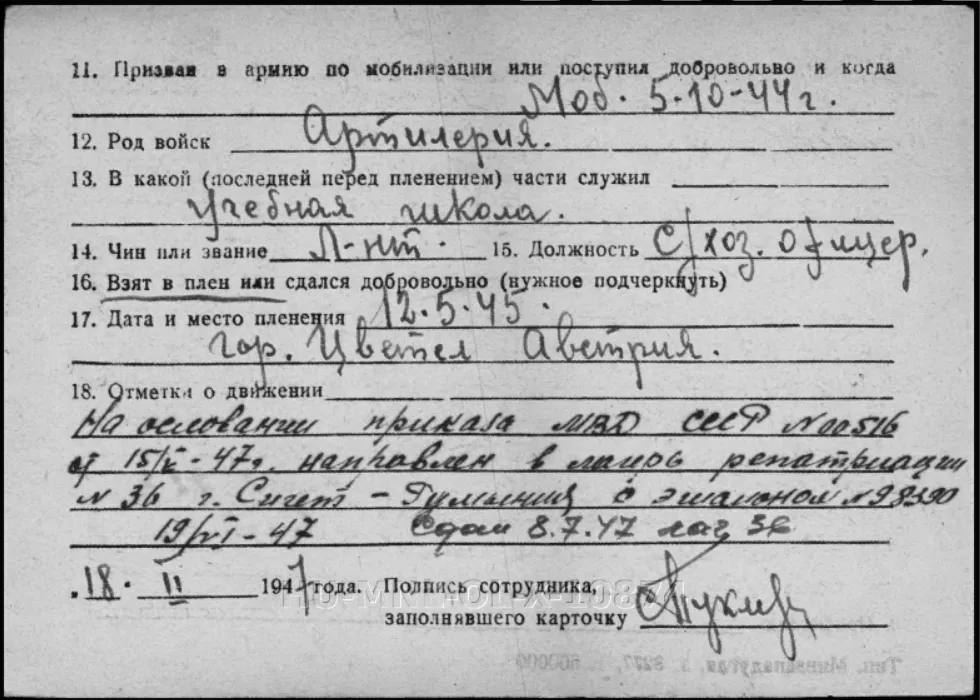 11. Призван в армию по мобилизации или поступил добровольно и когда
Моб. 5-10-44 г.
12. Род войск Артилерия.
13. В какой (последней перед пленением) части служил
Учебная школа.
14. Чин или звание Л-нт. 15. Должность С/хоз. офицер.
16. Взят в плен или сдался добровольно (нужное подчеркнуть)
17. Дата и место пленения 12.5.45.
гор. Цветел Австрия.
18. Отметки о движении
На основании приказа МВД СССР №00516
от 15/V-47г. направлен в лагерь репатриации
№ 36 г. Сигет – Румыния с эшалоном №98390
19/VI-47 Сдан 8.7.47 лаг 36
18. II 1947 года. Подпись сотрудника,
заполнявшего карточку